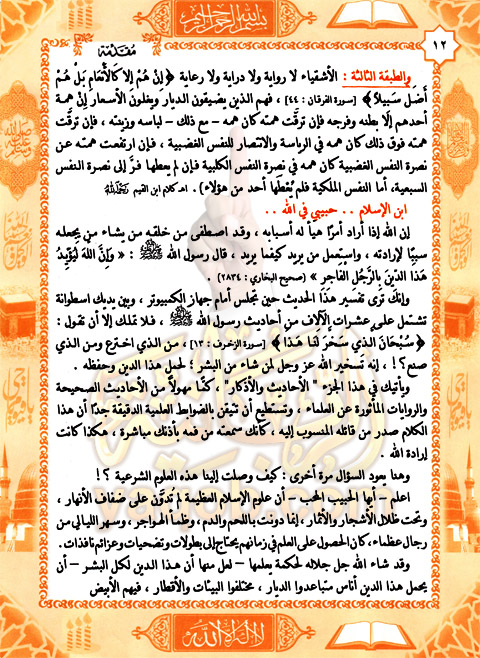 بسم الله الرحمن الرحيم
مقدمة
١٢
والطبقة الثالثة : الأشقياء لا رواية ولا دراية ولا رعاية ﴿ إِنْ هُمْ إِلا كَالأَنْعَامِ بَلْ هُمْ
أَضَلُّ سَبِيلاً ﴾ [سورة الفرقان : ٤٤] ، فهم الذين يضيقون الديار ويغلون الأسعار إنْ همة
أحدهم إلَّا بطنه وفرجه فإن ترقَّت همته كان همه - مع ذلك - لباسه وزينته ، فإن ترقَّت
همته فوق ذلك كان همه في الرياسة والانتصار للنفس الغضبية ، فإن ارتفعت همته عن
نصرة النفس الغضبية كان همه في نصرة النفس الكلبية فإن لم يعطها فـرَّ إلى نصرة النفس
السبعية، أما النفس الملكية فلم يُعْطَها أحد من هؤلاء) . اهـ كلام ابن القيم رحمه الله
ابن الإسلام .. حبيبي في الله ..
إن الله إذا أراد أمرًا هيأ له أسبابه ، وقد اصطفى من خلقه من يشاء من يجعله
سببًا لإرادته ، واستعمل من يريد كيفما يريد ، قال رسول الله ﷺ : « وَإِنَّ اللهَ لَيُؤَيِّدُ
هَذَا الدِّينَ بِالرَّجُلِ الفَاجِرِ » [صحيح البخاري : ٢٨٣٤]
وإنك ترى تفسير هذا الحديث حين تجلس أمام جهاز الكمبيوتر ، وبين يديك اسطوانة
تشتمل على عشرات الآلاف من أحاديث رسول الله ﷺ ، فلا تملك إلَّا أن تقول :
﴿ سُبْحَانَ الَّذِي سَخَّرَ لَنَا هَذَا ﴾ [سورة الزخرف : ١٣] ، من الذي اخترع ومن الذي
صنع ؟! ، إنه تسخير الله عز وجل لمن شاء من البشر ؛ لحمل هذا الدين وحفظه .
ويأتيك في هذا الجزء " الأحاديث والأذكار " ، كمًّا مهولاً من الأحاديث الصحيحة
والروايات المأثورة عن العلماء ، وتستطيع أن تتيقن بالضوابط العلمية الدقيقة جدًا أن هذا
الكلام صدر من قائله المنسوب إليه ، كأنك سمعته من فمه بأذنك مباشرة ، هكذا كانت
إرادة الله .
وهنا يعود السؤال مرة أخرى : كيف وصلت إلينا هذه العلوم الشرعية ؟!
اعلم - أيها الحبيب المحب - أن علوم الإسلام العظيمة لم تُدوَّن على ضفاف الأنهار ،
وتحت ظلال الأشجار والأثمار ، إنما دونت باللحم والدم ، وظمأ الهواجر ، وسهر الليالي من
رجال عظماء، كان الحصول على العلم في زمانهم يحتاج إلى بطولات وتضحيات وعزائم نافذات .
وقد شاء الله جل جلاله لحكمة يعلمها - لعل منها أن هذا الدين لكل البشر - أن
يحمل هذا الدين أناس متباعدوا الديار ، مختلفوا البيئات والأقطار ، فيهم الأبيض
لا إله إلا الله